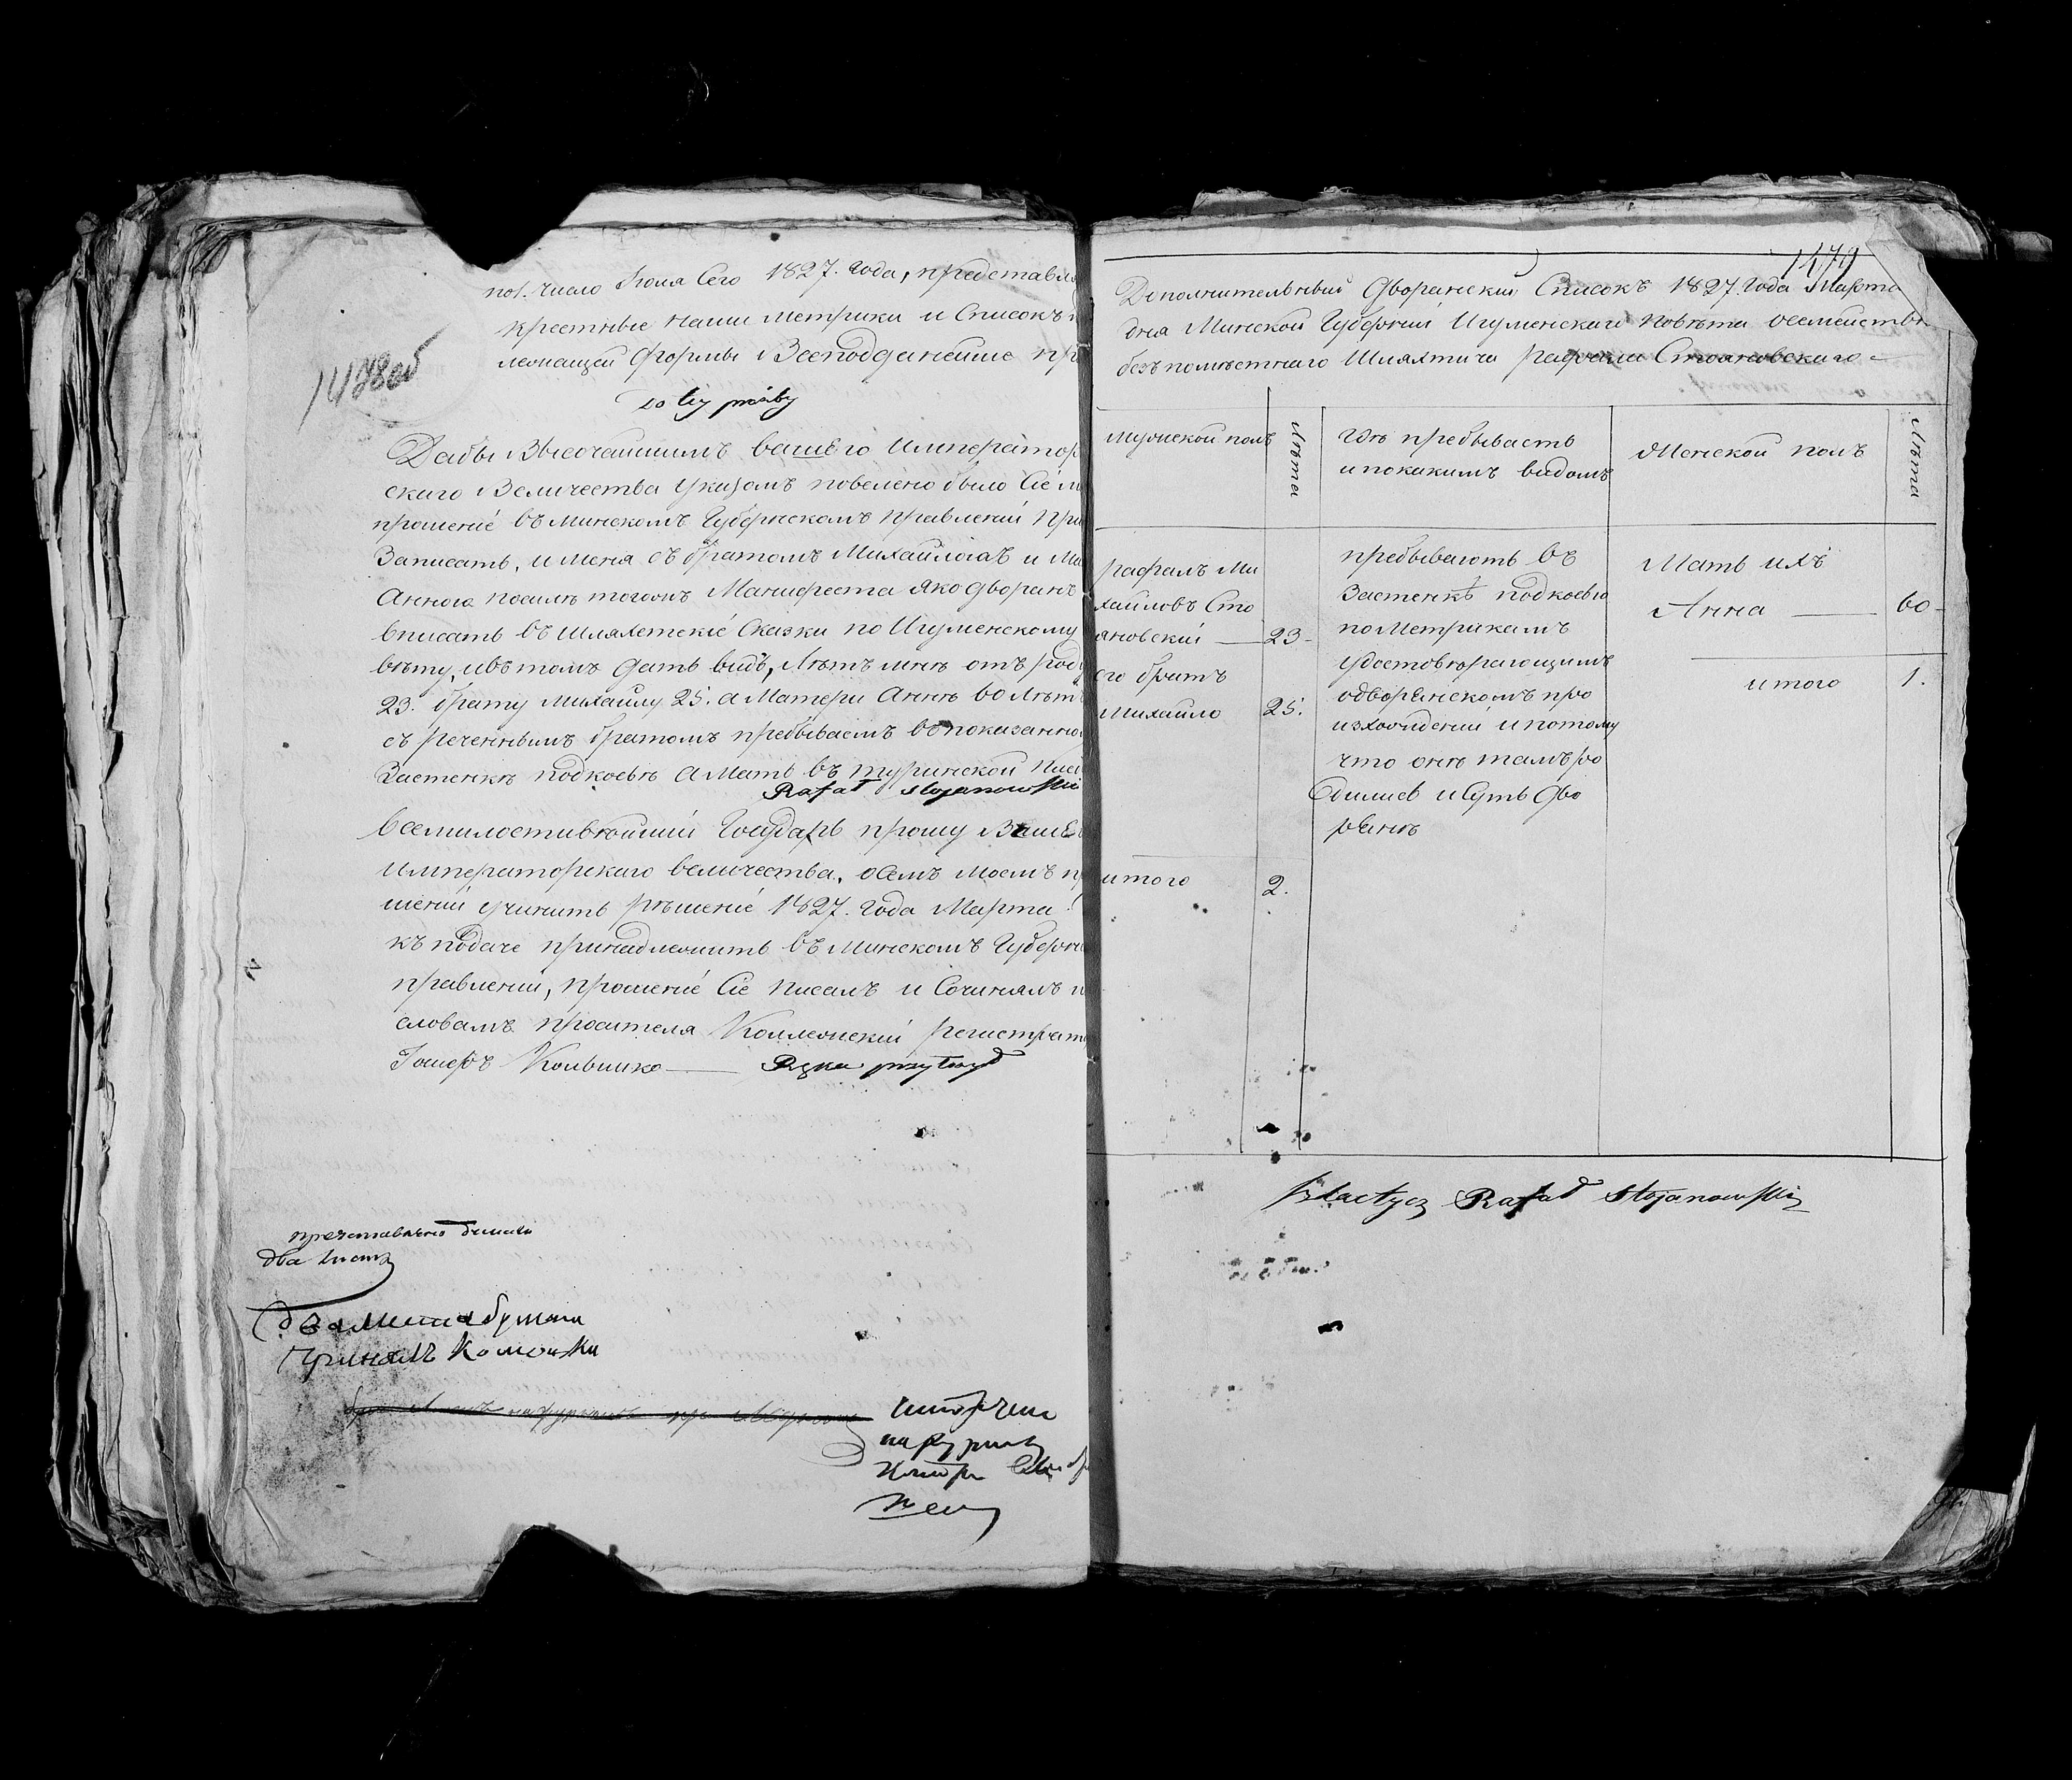 1478об
по 1. число Iюля Сего 1827. года, представля
крестные наши метрики и Списокъ
лежащей формы Всеподданейше пр
do tey prośby
Дабы Высочайшимъ вашего император
скаго Величества указомъ повелено было Сiе м
прошенiе въ минскомъ Губернскомъ правленiи при
Записать, и меня съ братомъ Михайломъ и Ма
Анною посилѣ тогожъ Манифеста яко дворянъ
вписать въ шляхетскiе Сказки по Игуменскому
вѣту, ивътомъ дать видъ, Лѣтъ мнѣ отъ род
23. брату Михайлу 25. а Матери Аннѣ 60 лѣтъ
съ реченнымъ братомъ пребываемъ въ показанно
Застенкѣ подкоевѣ а Мать въ туринской
Rafał Stojanowski
всемилостивѣйшiй Государь прошу Ваше
императорскаго величества, осемъ моемъ п
шенiи учинить рѣшенiе 1827. года Марта
къ подаче принадлежитъ въ минскомъ Губерн
правленiи, прошенiе Сiе писалъ и Сочинялъ
словамъ просителя Коллежскiй регистрат
Iосифъ Ręką przyłożył
два листа
два листа бумаги
1479
Дополнительный Дворянскiй Списокъ 1827. года Марта
дня Минской Губернiи Игуменскаго повѣта осемействѣ
безъпомѣстнаго Шляхтича рафала Стояновскаго
мужской полъ
Лѣта
гдѣ пребываетъ
и покакимъ видомъ
Женской полъ
Лѣта
рафалъ Ми
хайловъ Сто
яновскiй 23
его братъ
Михайло 25.
итого 2.
пребываютъ въ
Застенкѣ подкоевѣ
по Метрикамъ
удостовѣряющимъ
одворянскомъ про
изхожденiи и потому
что онѣ тамъ ро
дились и Суть Дво
рянѣ
Мать ихъ
Анна 60
итого 1.
Szlachcyc Rafał Stojanowski